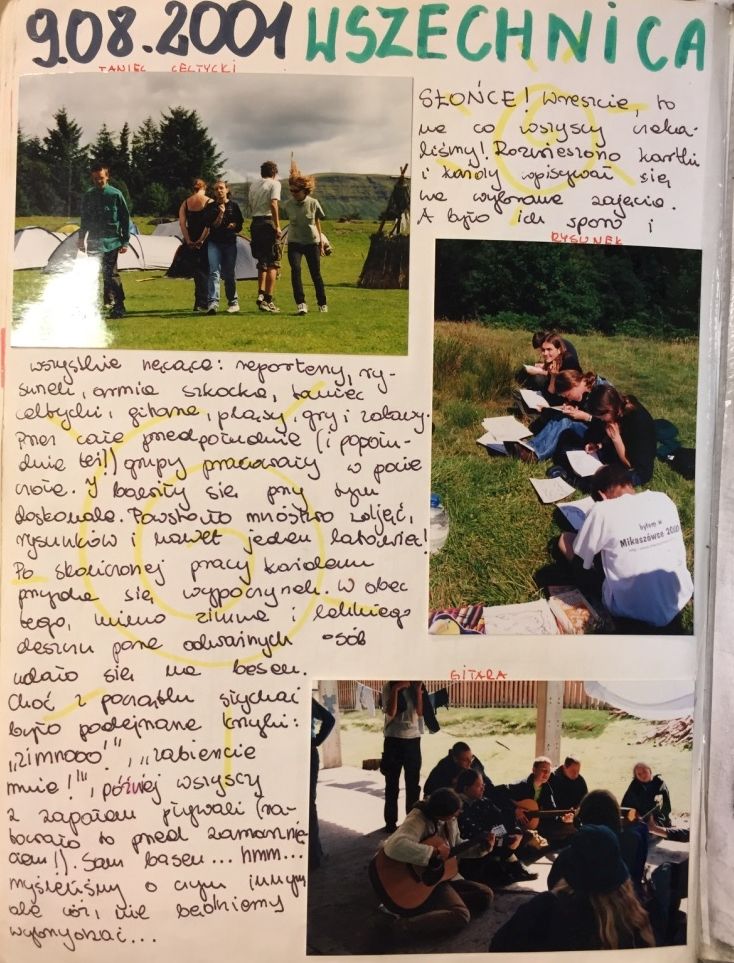 9.08.2001 WSZECHNICA
TANIEC CELTYCKI
SŁOŃCE! Wreszcie, to
na co wszyscy czeka-
liśmy! Rozwieszono kartki
i każdy wpisywał się
na wybrane zajęcia.
A było ich sporo i
RYSUNEK
wszystkie nęcące: reporterzy, ry-
sunek, armia szkocka, taniec
celtycki, gitara, pląsy, gry i zabawy.
Przez całe przedpołudnie (i popołu-
dnie też!) grupy pracowały w pocie
czoła. I bawiły się przy tym
doskonale. Powstało mnóstwo zdjęć,
rysunków i nawet jeden latawiec!
Po skończonej pracy każdemu
przyda się wypoczynek. W obec
tego, mimo zimna i lekkiego
deszczu parę odważnych osób
udało się na basen.
Choć z początku słychać
było podejrzane krzyki:
"zimnooo!", "zabierzcie
mnie!", później wszyscy
z zapałem pływali (ra-
towało to przed zamarznię-
ciem!). Sam basen... hmm...
myśleliśmy o czym innym
ale cóż, nie będziemy
wybrzydzać...
byłem w
Mikaszówce 2000
GITARA